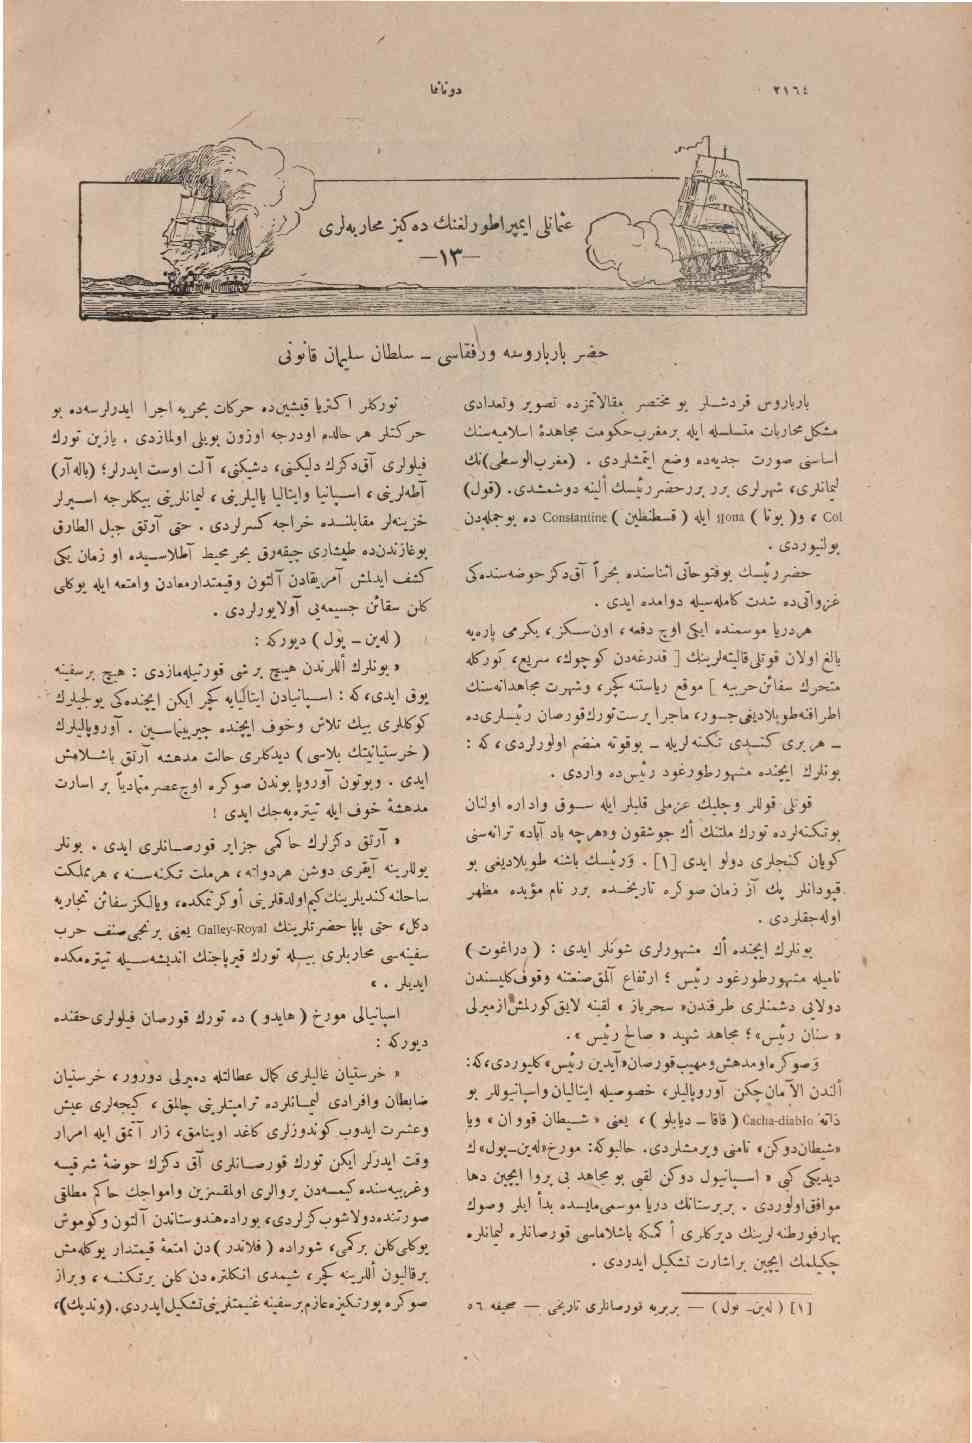 ٢١٦٤
دوناﻧﻤﺎ
عثمانلى ايمپراطورلغنك ده كيز محاربه لرى
—١٣—
حضر بارباروسه ورفقاسى — سلطان سليمان قانونى
بارباروس قردشلر بو مختصر مقالاتمزده تصوير وتعدادى
مشكل محاربات متسلسله ايله بر مغرب حكومت مجاهدۀ اسلاميه سنك
اساسنى صورت جديه ده وضع ايتمشلردى . (مغرب الوسطى) نك
ليمانلرى، شهرلرى برر برر حضر رئيسك ألينه دوشمشدى. (قول)
Col ، و( بونا ) Bona ايله ( قسطنطين ) Constantine ده بو جمله دن
بولنيوردى .
حضر رئيسك بو فتوحاتى اثناسنده بحراً آق دكز حوضه سنده كى
غزواتى ده شدت كامله سيله دوامده ايدى .
هر دريا موسمنده ايكى اوچ دفعه ، اون سكز، يكرمى پاره يه
بالغ اولان قوتلى قاليته لرينك [ قدرغه دن كوچوك، سريع، كوركله
متحرك سفائن حربيه ] موقع رياستنه كچر، وشهرت مجاهدانه سنك
اطرافنه طوپلاديغى جسور، ماجرا پرست تورك قورصان رئيسلرى ده
— هر برى كندى تكنه لريله — بو قوته منضم اولورلردى ، كه :
بونلرك ايچنده مشهور طورغود رئيس ده واردى .
قوتلى قوللر وچليك عزملى قلبلر ايله سوق واداره اولنان
بو تكنه لرده تورك ملتنك أك جوشقون و«هرچه باد آباد» ترانه سنى
كويان كنجلرى دولو ايدى [١]. و رئيسك باشنه طوپلاديغى بو
قپودانلر پك آز زمان صوكره تاريخده برر نام مؤيده مظهر
اوله جقلردى .
بونلرك ايچنده أك مشهورلرى شونلر ايدى : ( دراغوت )
ناميله مشهور طورغود رئيس ؛ ارتفاع آلمق صنعتنه وقوف كليسندن
دولايى دشمنلرى طرفندن « سحرباز » لقبنه لايق كورلمش ازميرلى
« سنان رئيس» ؛ مجاهد شهيد « صالح رئيس ».
و صوكره او مدهش ومهيب قورصان « آيدين رئيس » كليوردى، كه:
ألندن الآمان چكن آوروپاليلر، خصوصيله ايتاليان واسپانيوللر بو
ذاته Cacha-diablo ( قاقا — ديابلو ) ، يعنى « شيطان قووان » ويا
«شيطان دوكن» نامنى ويرمشلردى. حالبوكه: مورخ «له ين—پول» ك
ديديكى كبى « اسپانيول دوكن لقبى بو مجاهد بى پروا ايچين دها
موافق اولوردى . بربرستانك دريا موسمى مايسده بدأ ايلر وصوك
بهار فورطنه لرينك ديركلرى أكمكه باشلاماسى قورصانلره ليمانلره
چكيلمك ايچين بر اشارت تشكيل ايدردى .
[١] ( له ين— پول ) — بربريه قورصانلرى تاريخى — صحيفه ٥٦
توركلر اكثريا قيشين ده حركات بحريه اجرا ايدرلرسه ده بو
حركتلر هر حالده اودرجه اوزون بويلى اولمازدى . يازين تورك
فيلولرى آق دكزك دليكنى، دشيكنى، آلت اوست ايدرلر؛ (باله آر)
آطه لرينى ، اسپانيا وايتاليا ياليلرينى ، ليمانلرينى بيكلرجه اسيرلر
خزينه لر مقابلنده خراجه كسرلردى . حتى آرتق جبل الطارق
بوغازندن ده طيشارى چيقه رق بحر محيط آطلاسيده او زمان يكى
كشف ايدلمش آمريقادن آلتون وقيمتدار معادن وامتعه ايله يوكلى
كلن سفائن جسيمه يى آولايورلردى .
( له ين — پول ) ديوركه :
« بونلرك أللرندن هيچ بر شى قورتيله مازدى : هيچ بر سفينه
يوق ايدى، كه : اسپانيادن ايتاليايه كچر ايكن ايچنده كى يولجيلرك
كوكللرى بيك تلاش وخوف ايچنده چيرپينماسين . آوروپاليلرك
( خرستيانيتك بلاسى ) ديدكلرى حالت مدهشه آرتق باشلامش
ايدى . وبوتون آوروپا بوندن صوكره اوچ عصر متمادياً بر اسارت
مدهشۀ خوف ايله تيتره يه جك ايدى !
« آرتق دكزلرك حاكمى جزاير قورصانلرى ايدى . بونلر
يوللرينه آيقرى دوشن هر دولته ، هر ملت تكنه سنه ، هر مملكت
ساحلنه كنديلرينك كيم اولدقلرينى أوكرتمكده، ويالكز سفائن تجاريه
دكل، حتى پاپا حضرتلرينك Galley-Royal يعنى برنجى صنف حرب
سفينه سى محاربلرى بيله تورك قيرباجنك انديشه سيله تيتره مكده
ايديلر . »
اسپانيالى مورخ ( هايدو ) ده تورك قورصان فيلولرى حقنده
ديوركه :
« خرستيان غاليلرى كمال عطالتله دميرلى دورور ، خرستيان
ضابطان وافرادى ليمانلرده ترامپتلرينى چالمق ، كيجه لرى عيش
وعشرت ايدوب كوندوزلرى كاغد اوينامق، زار آتمق ايله امرار
وقت ايدرلر ايكن تورك قورصانلرى آق دكزك حوضۀ شرقيه
وغربيه سنده كيمسه دن پروالرى اولمقسزين وامواجك حاكم مطلقى
صورتنده دولاشوب كزلردى، بوراده هندوستاندن آلتون وكوموش
يوكلى كلن بركمى، شوراده ( فلاندر ) دن امتعۀ قيمتدار يوكله مش
بر قاليون أللرينه كچر، شيمدى انكلتره دن كلن بر تكنه ، وبراز
صوكره پورتكيزه عازم بر سفينه غنيمتلرينى تشكيل ايدردى. (ونديك)،